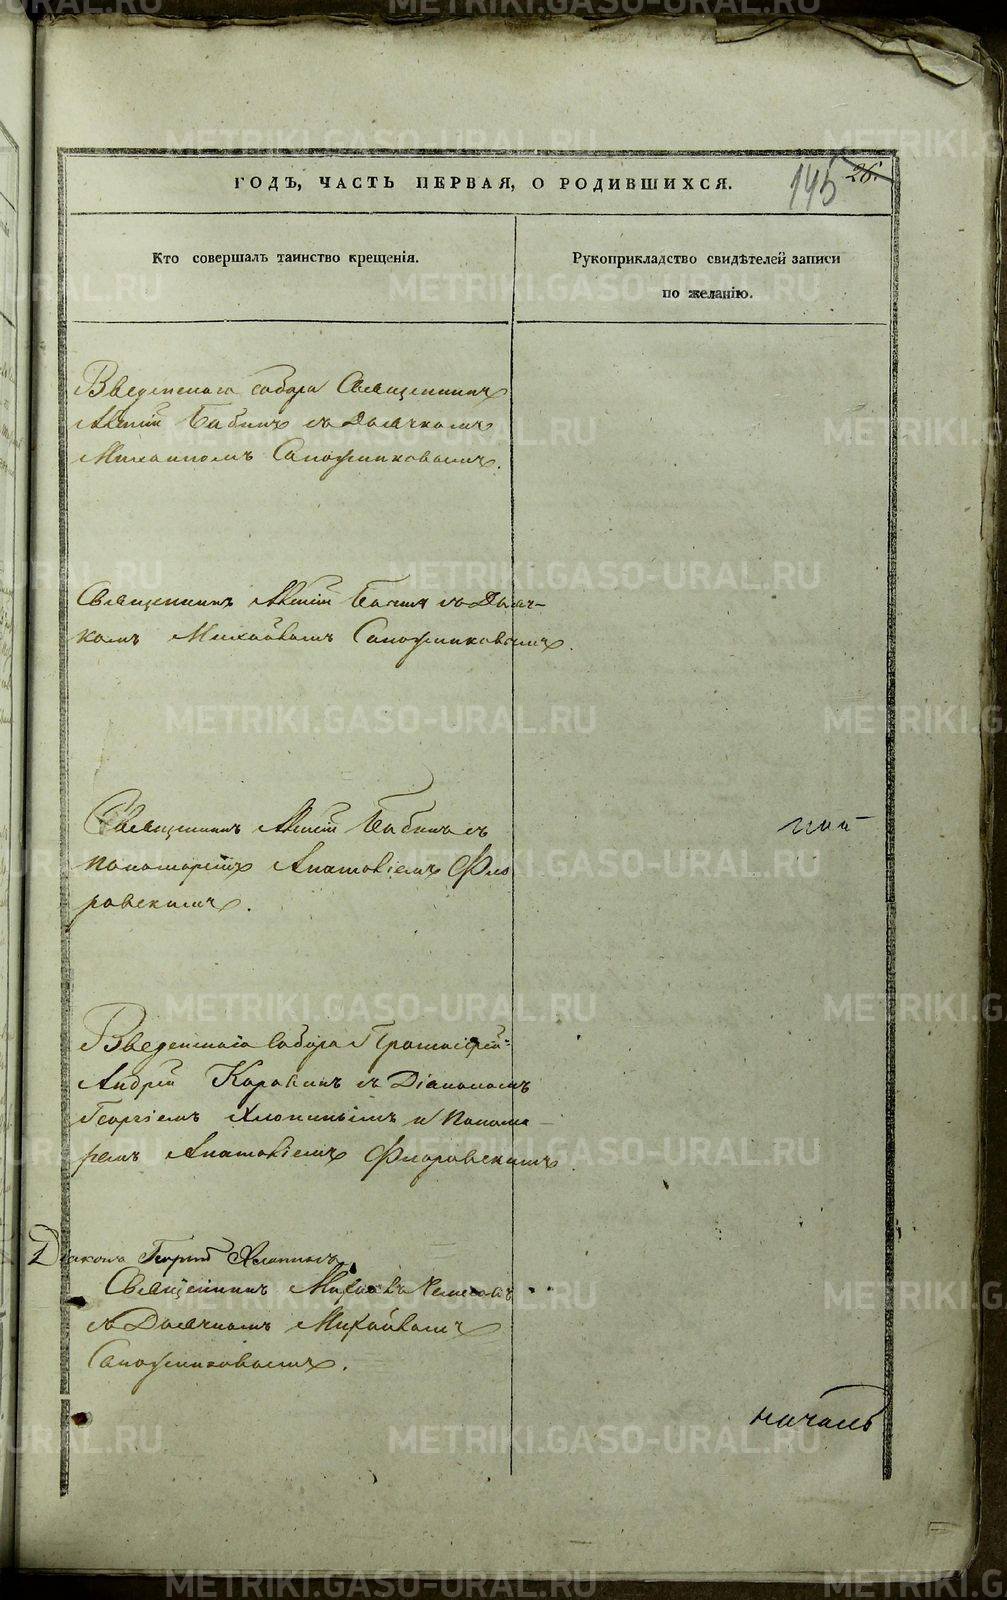 145 26.
ГОДЪ, ЧАСТЬ ПЕРВАЯ, О РОДИВШИХСЯ.
Кто совершалъ таинство крещенія.
Рукоприкладство свидѣтелей записи
по желанію.
Введенскаго собора Священникъ
Бабинъ съ Дьячкомъ
Михаиломъ Сапожниковымъ.
Священникъ Бабинъ съ Дьяч-
комъ Михайломъ Сапожниковымъ.
Священникъ Бабинъ съ
пономаремъ Ипатовіемъ Фло
ровскимъ.
Введенскаго собора Протоіерей
Андрей Коровинъ съ Діакономъ
Георгіемъ Хлопинымъ и Понома-
ремъ Флоровскимъ
Діаконъ Георгій Хлопинъ
Священникъ
съ Дьячкомъ Михайломъ
Сапожниковымъ.
METRIKI.GASO-URAL.RU